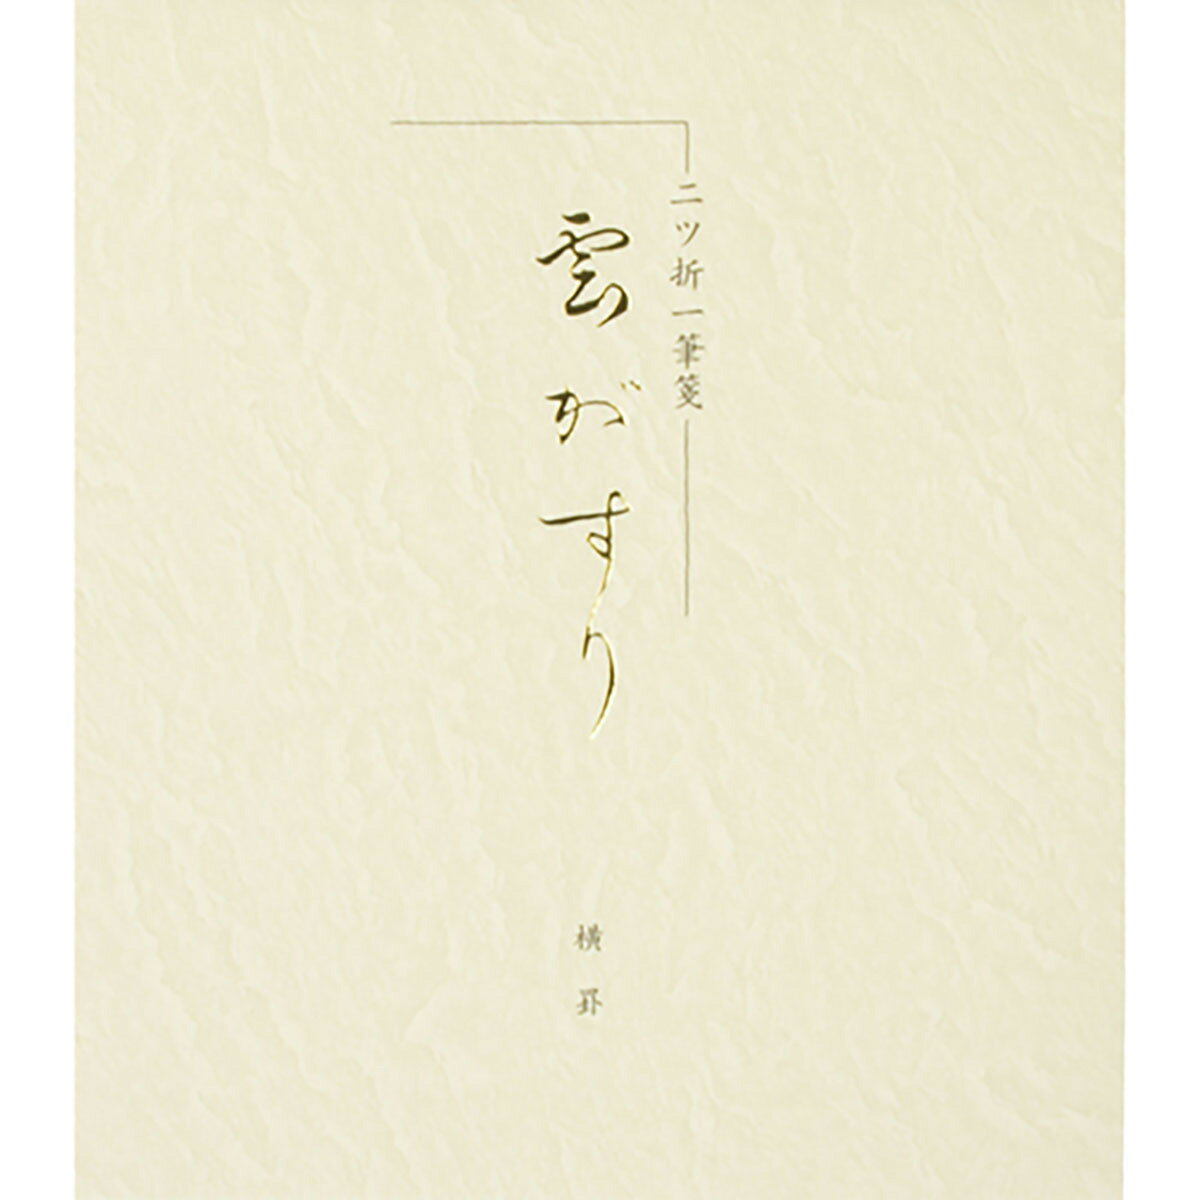 二ツ折一筆箋
雲がすり
横罫